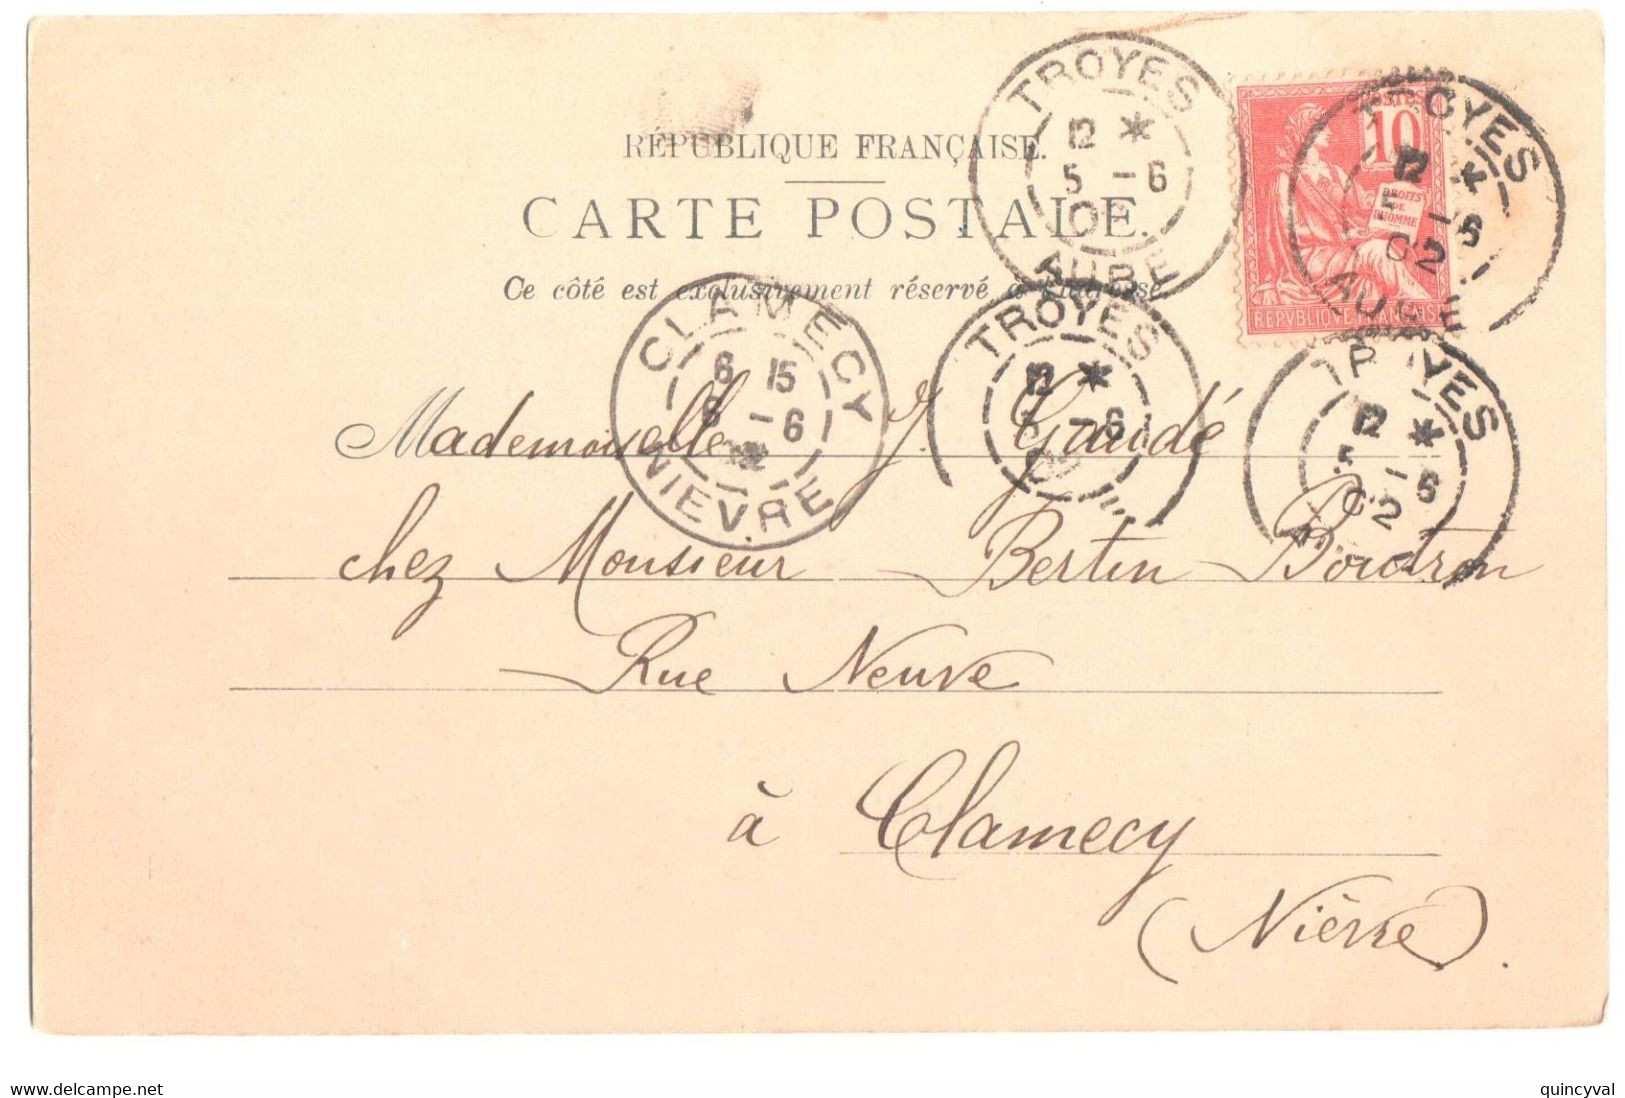 RÉPUBLIQUE FRANÇAISE.
CARTE POSTALE.
Ce côté est exclusivement réservé à l'adresse.
TROYES
12 *
5 - 6
02
AUBE
POSTES
10
DROITS
DE
L'HOMME
REPVBLIQVE FRANÇAISE
TROYES
12 *
5 - 6
02
AUBE
CLAMECY
6 15
6 - 6
02
NIEVRE
TROYES
12 *
- 6
TROYES
12 *
5 - 6
02
Mademoiselle J. Gaudé
chez Monsieur Bertin Boidron
Rue Neuve
à Clamecy
(Nièvre).
delcampe.net
quincyval